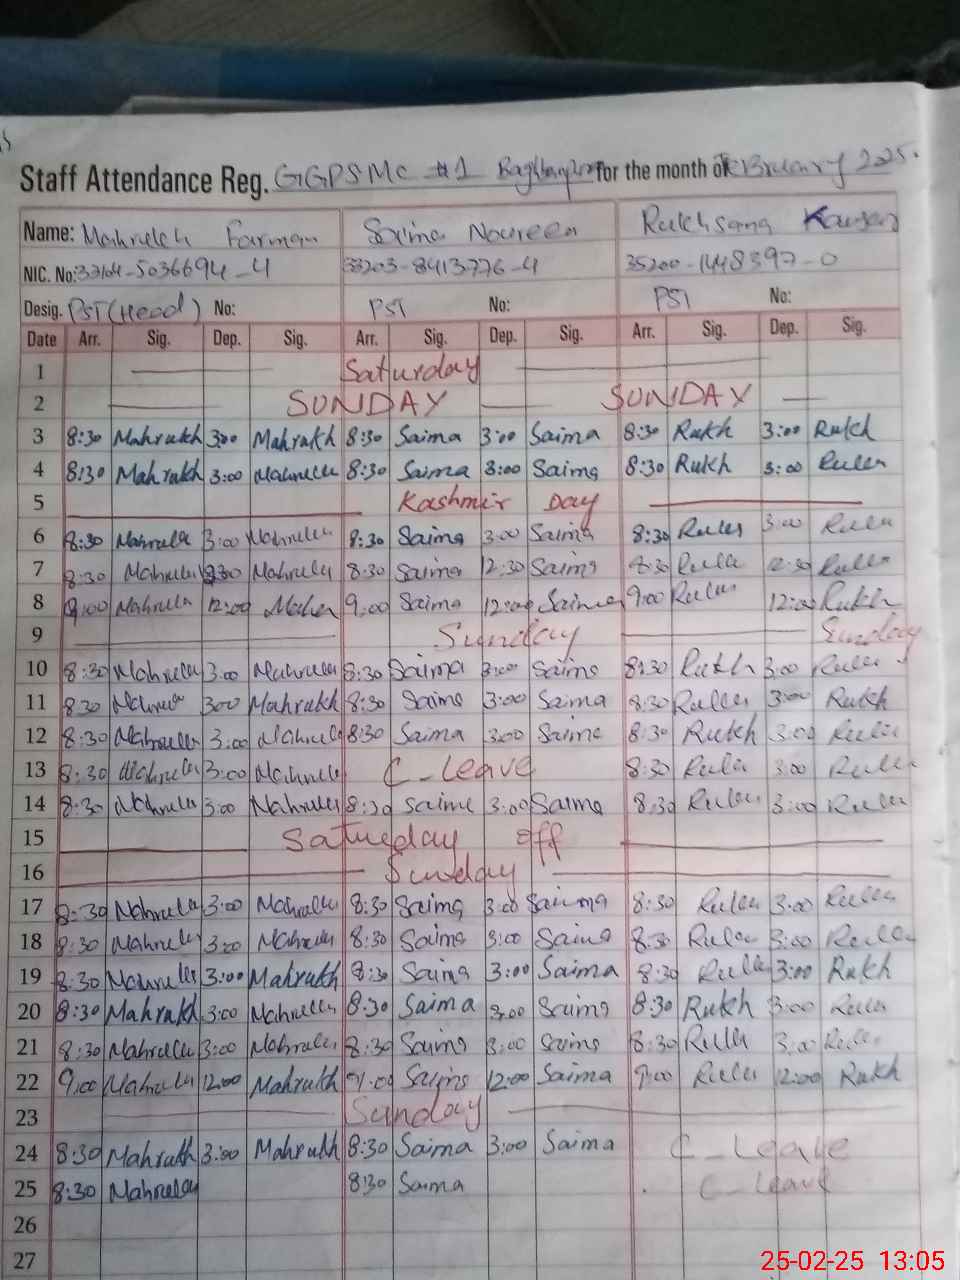 Staff Attendance Reg. GGPSMC #1 for the month of February 2025.
Name: Mahrukh Farman Saima Noureen Rukhsana Kausar
NIC. No: 33203-8413776-4 35200-1448397-0
Desig. PST (Head) No: PST No: PST No:
Date Arr. Sig. Dep. Sig. Arr. Sig. Dep. Sig. Arr. Sig. Dep. Sig.
1 Saturday
2 SUNDAY SUNDAY
3 8:30 Mahrukh 3:00 Mahrukh 8:30 Saima 3:00 Saima 8:30 Rukh 3:00 Rukh
4 8:30 Mahrukh 3:00 Mahrukh 8:30 Saima 3:00 Saima 8:30 Rukh 3:00 Rukh
5 Kashmir Day
6 8:30 Mahrukh 3:00 Mahrukh 8:30 Saima 3:00 Saima 8:30 Rukh 3:00 Rukh
7 8:30 Mahrukh Mahrukh 8:30 Saima 12:30 Saima 8:30 Rukh 12:30 Rukh
8 9:00 Mahrukh 12:00 9:00 Saima 12:00 Saima 9:00 Rukh 12:00 Rukh
9 Sunday Sunday
10 8:30 Mahrukh 3:00 Mahrukh 8:30 Saima 3:00 Saima 8:30 Rukh 3:00 Rukh
11 8:30 Mahrukh 3:00 Mahrukh 8:30 Saima 3:00 Saima 8:30 Rukh 3:00 Rukh
12 8:30 Mahrukh 3:00 Mahrukh 8:30 Saima 3:00 Saima 8:30 Rukh 3:00 Rukh
13 8:30 Mahrukh 3:00 Mahrukh C-Leave 8:30 Rukh 3:00 Rukh
14 8:30 Mahrukh 3:00 Mahrukh 8:30 Saima 3:00 Saima 8:30 Rukh 3:00 Rukh
15 Saturday off
16 Sunday
17 8:30 Mahrukh 3:00 Mahrukh 8:30 Saima 3:00 Saima 8:30 Rukh 3:00 Rukh
18 8:30 Mahrukh 3:00 Mahrukh 8:30 Saima 3:00 Saima 8:30 Rukh 3:00 Rukh
19 8:30 Mahrukh 3:00 Mahrukh 8:30 Saima 3:00 Saima 8:30 Rukh 3:00 Rukh
20 8:30 Mahrukh 3:00 Mahrukh 8:30 Saima 3:00 Saima 8:30 Rukh 3:00 Rukh
21 8:30 Mahrukh 3:00 Mahrukh 8:30 Saima 3:00 Saima 8:30 Rukh 3:00 Rukh
22 9:00 Mahrukh 12:00 Mahrukh 9:00 Saima 12:00 Saima 9:00 Rukh 12:00 Rukh
23 Sunday
24 8:30 Mahrukh 3:00 Mahrukh 8:30 Saima 3:00 Saima C-Leave
25 8:30 Mahrukh 8:30 Saima C-Leave
26
27
25-02-25 13:05